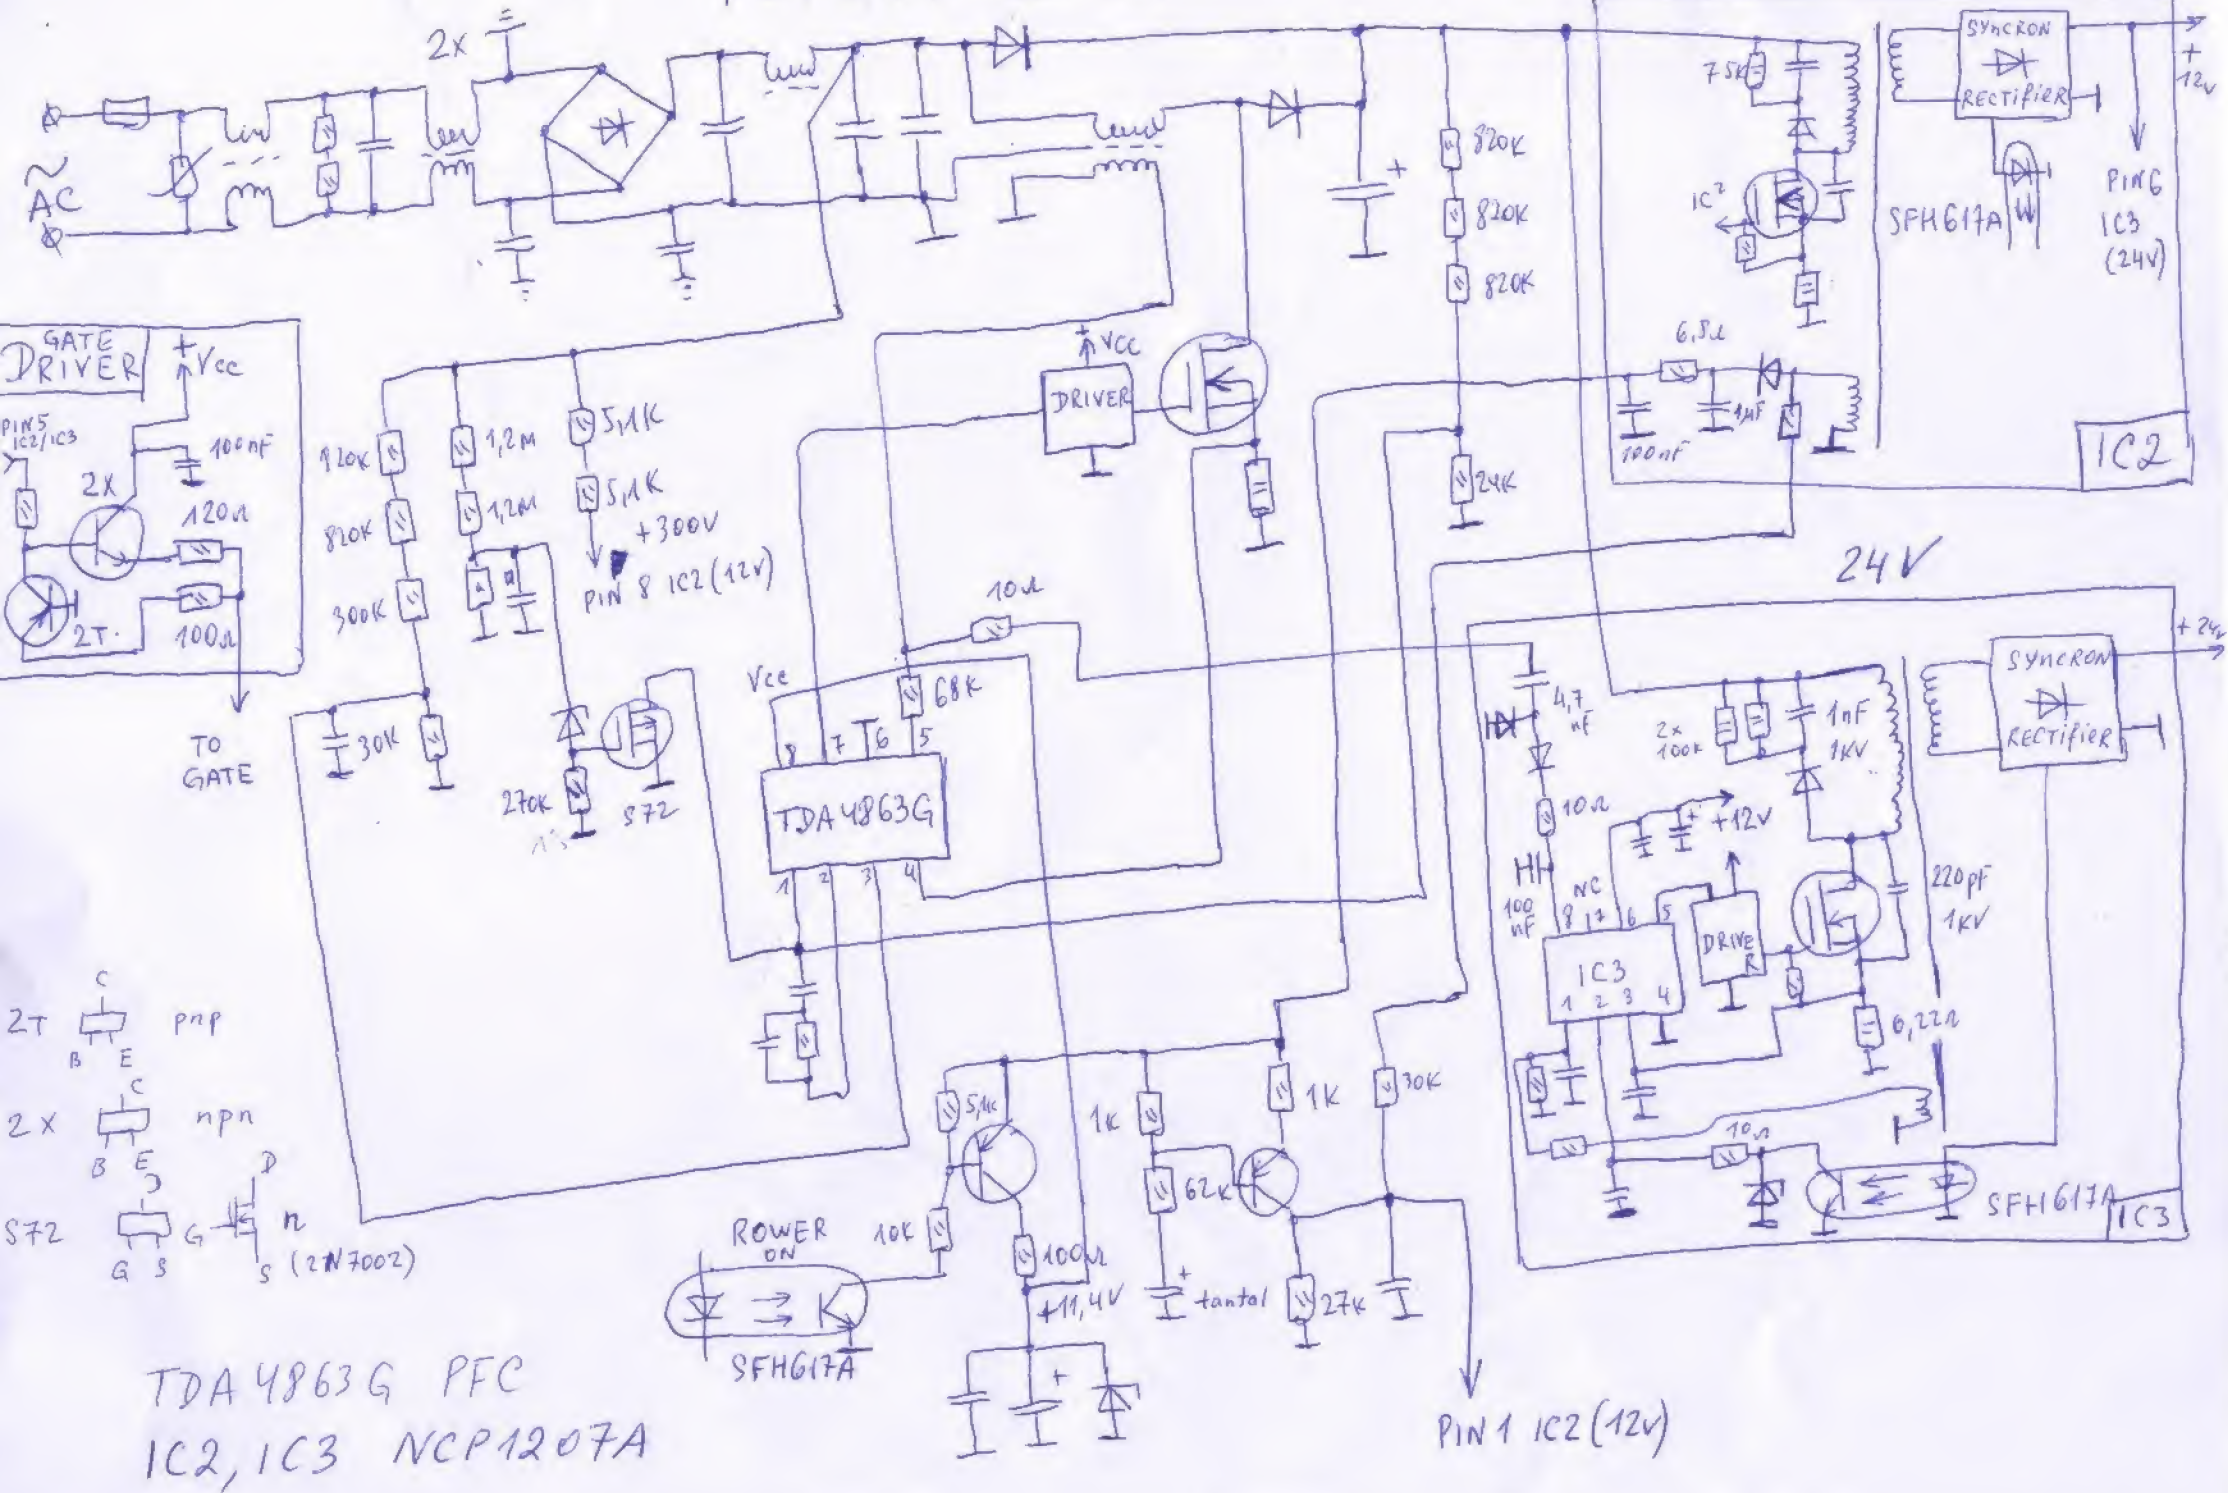 2x
~
AC
SYNCRON
RECTIFIER
+
12V
75K
IC2
SFH617A
PIN6
IC3
(24V)
820K
820K
820K
24K
6,8Ω
1µF
100nF
IC2
GATE
DRIVER
+
Vcc
PIN5
IC2/IC3
100nF
2X
120Ω
100Ω
2T.
TO
GATE
820K
820K
300K
30K
1,2M
1,2M
5,1K
5,1K
+300V
PIN 8 IC2 (12V)
270K
S72
+
VCC
DRIVER
+
10Ω
Vcc
68K
8 7 6 5
TDA4863G
1 2 3 4
24V
+24V
SYNCRON
RECTIFIER
4,7
nF
2x
100K
1nF
1KV
10Ω
+
+12V
100
nF
NC
8 7 6 5
IC3
1 2 3 4
DRIVE
R
220pF
1KV
0,22Ω
10Ω
SFH617A
IC3
2T
C
B E
pnp
2X
C
B E
npn
S72
D
G S
D
G
S
n
(2N7002)
5,1K
10K
POWER
ON
SFH617A
100Ω
+11,4V
+
1K
62K
+
tantal
1K
27K
30K
PIN 1 IC2 (12V)
TDA4863G PFC
IC2, IC3 NCP1207A